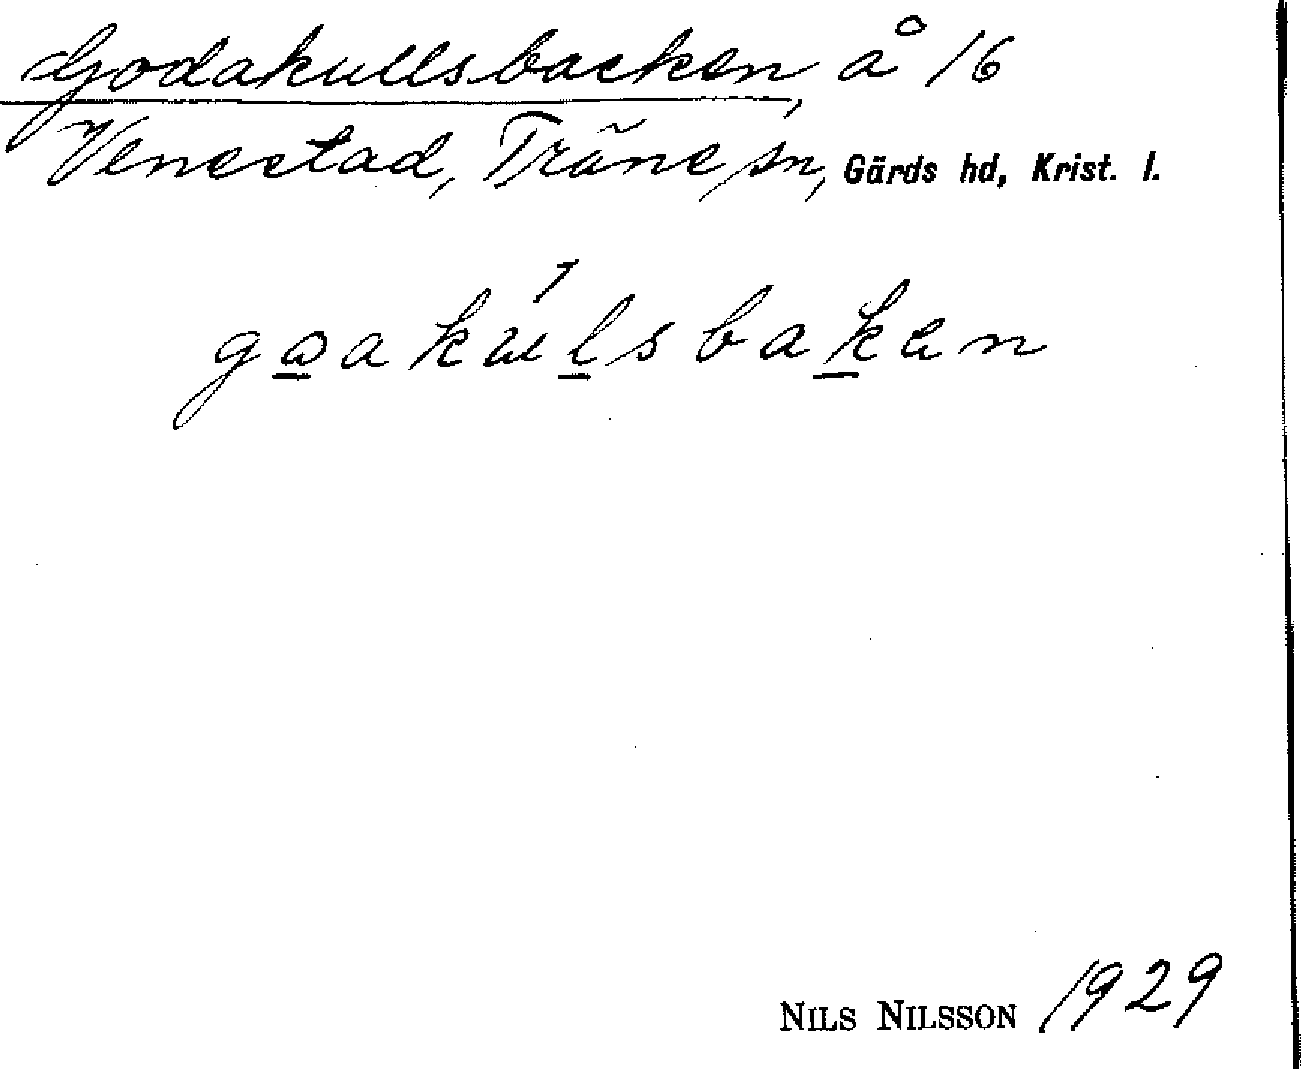 Godakullsbacken, å 16
Venestad, Träne sn, Gärds hd, Krist. l.
gωakúlsbaken
NILS NILSSON 1929